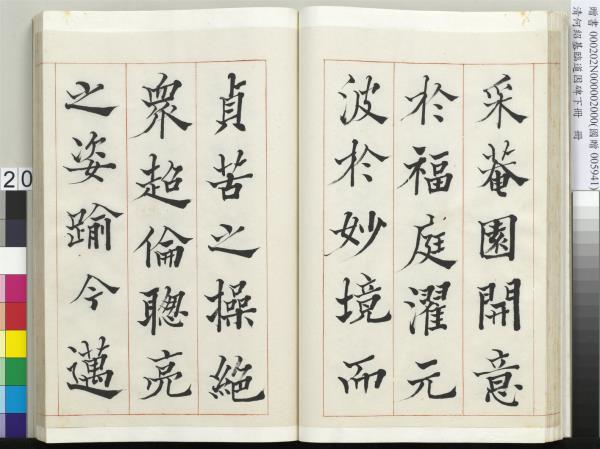 采菴園開意
於福庭濯元
波於妙境而
貞苦之操絶
衆超倫聰亮
之姿踰今邁
贈書 000202N000002000(國贈 005941)
清何紹基臨道因碑下冊 冊
20